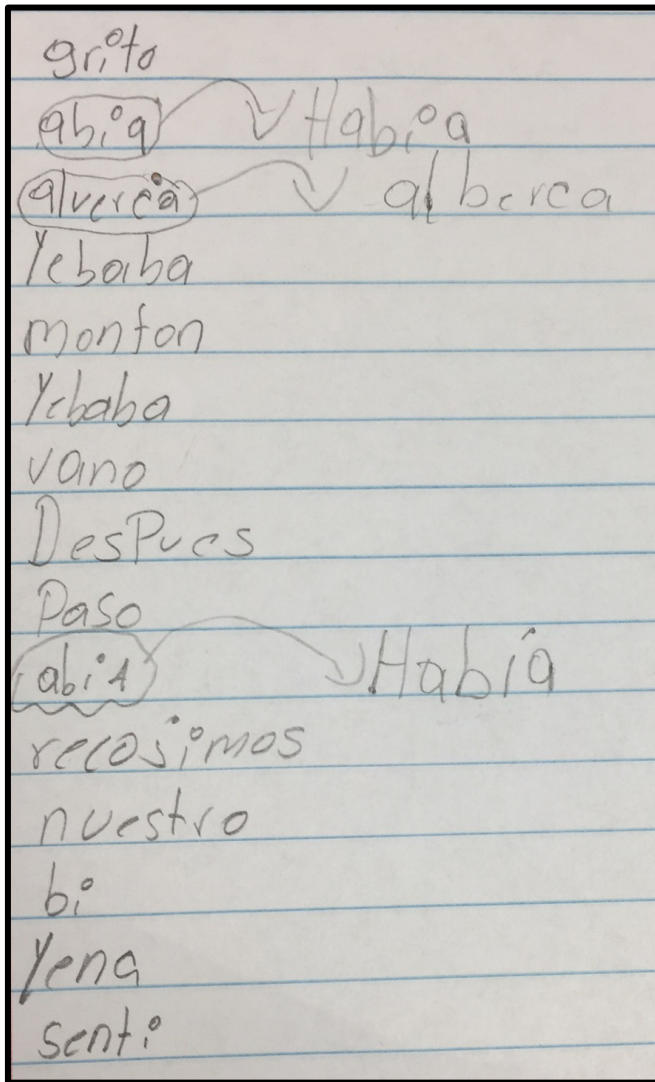 grito
abia Habia
alverca alberca
Yebaba
monton
Yebaba
vano
DesPues
Paso
abiA Había
recosimos
nuestro
bi
Yena
senti